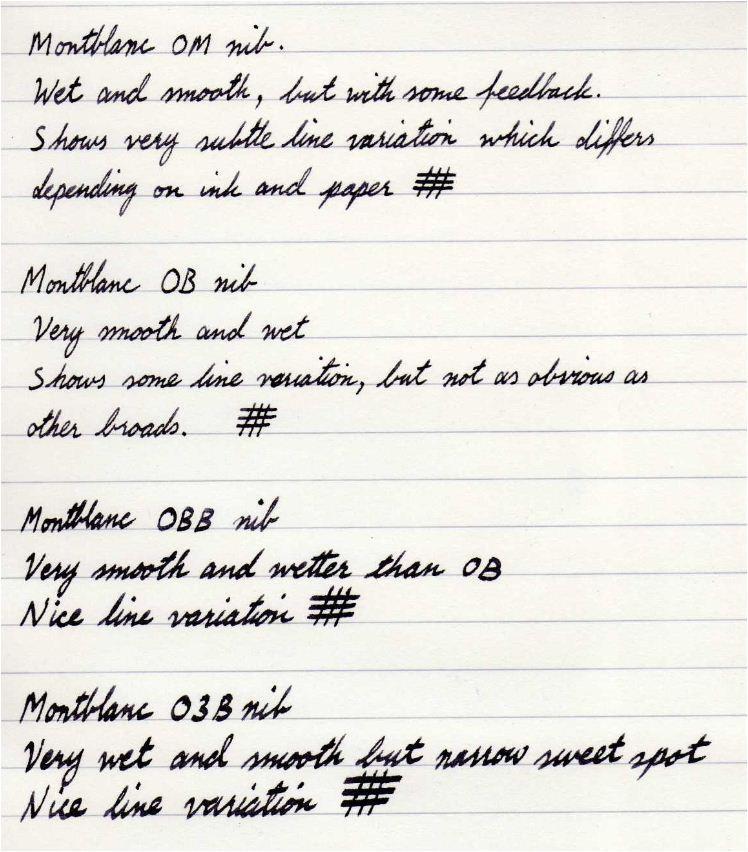 Montblanc OM nib.
Wet and smooth, but with some feedback.
Shows very subtle line variation which differs
depending on ink and paper
Montblanc OB nib
Very smooth and wet
Shows some line variation, but not as obvious as
other broads.
Montblanc OBB nib
Very smooth and wetter than OB
Nice line variation
Montblanc O3B nib
Very wet and smooth but narrow sweet spot
Nice line variation